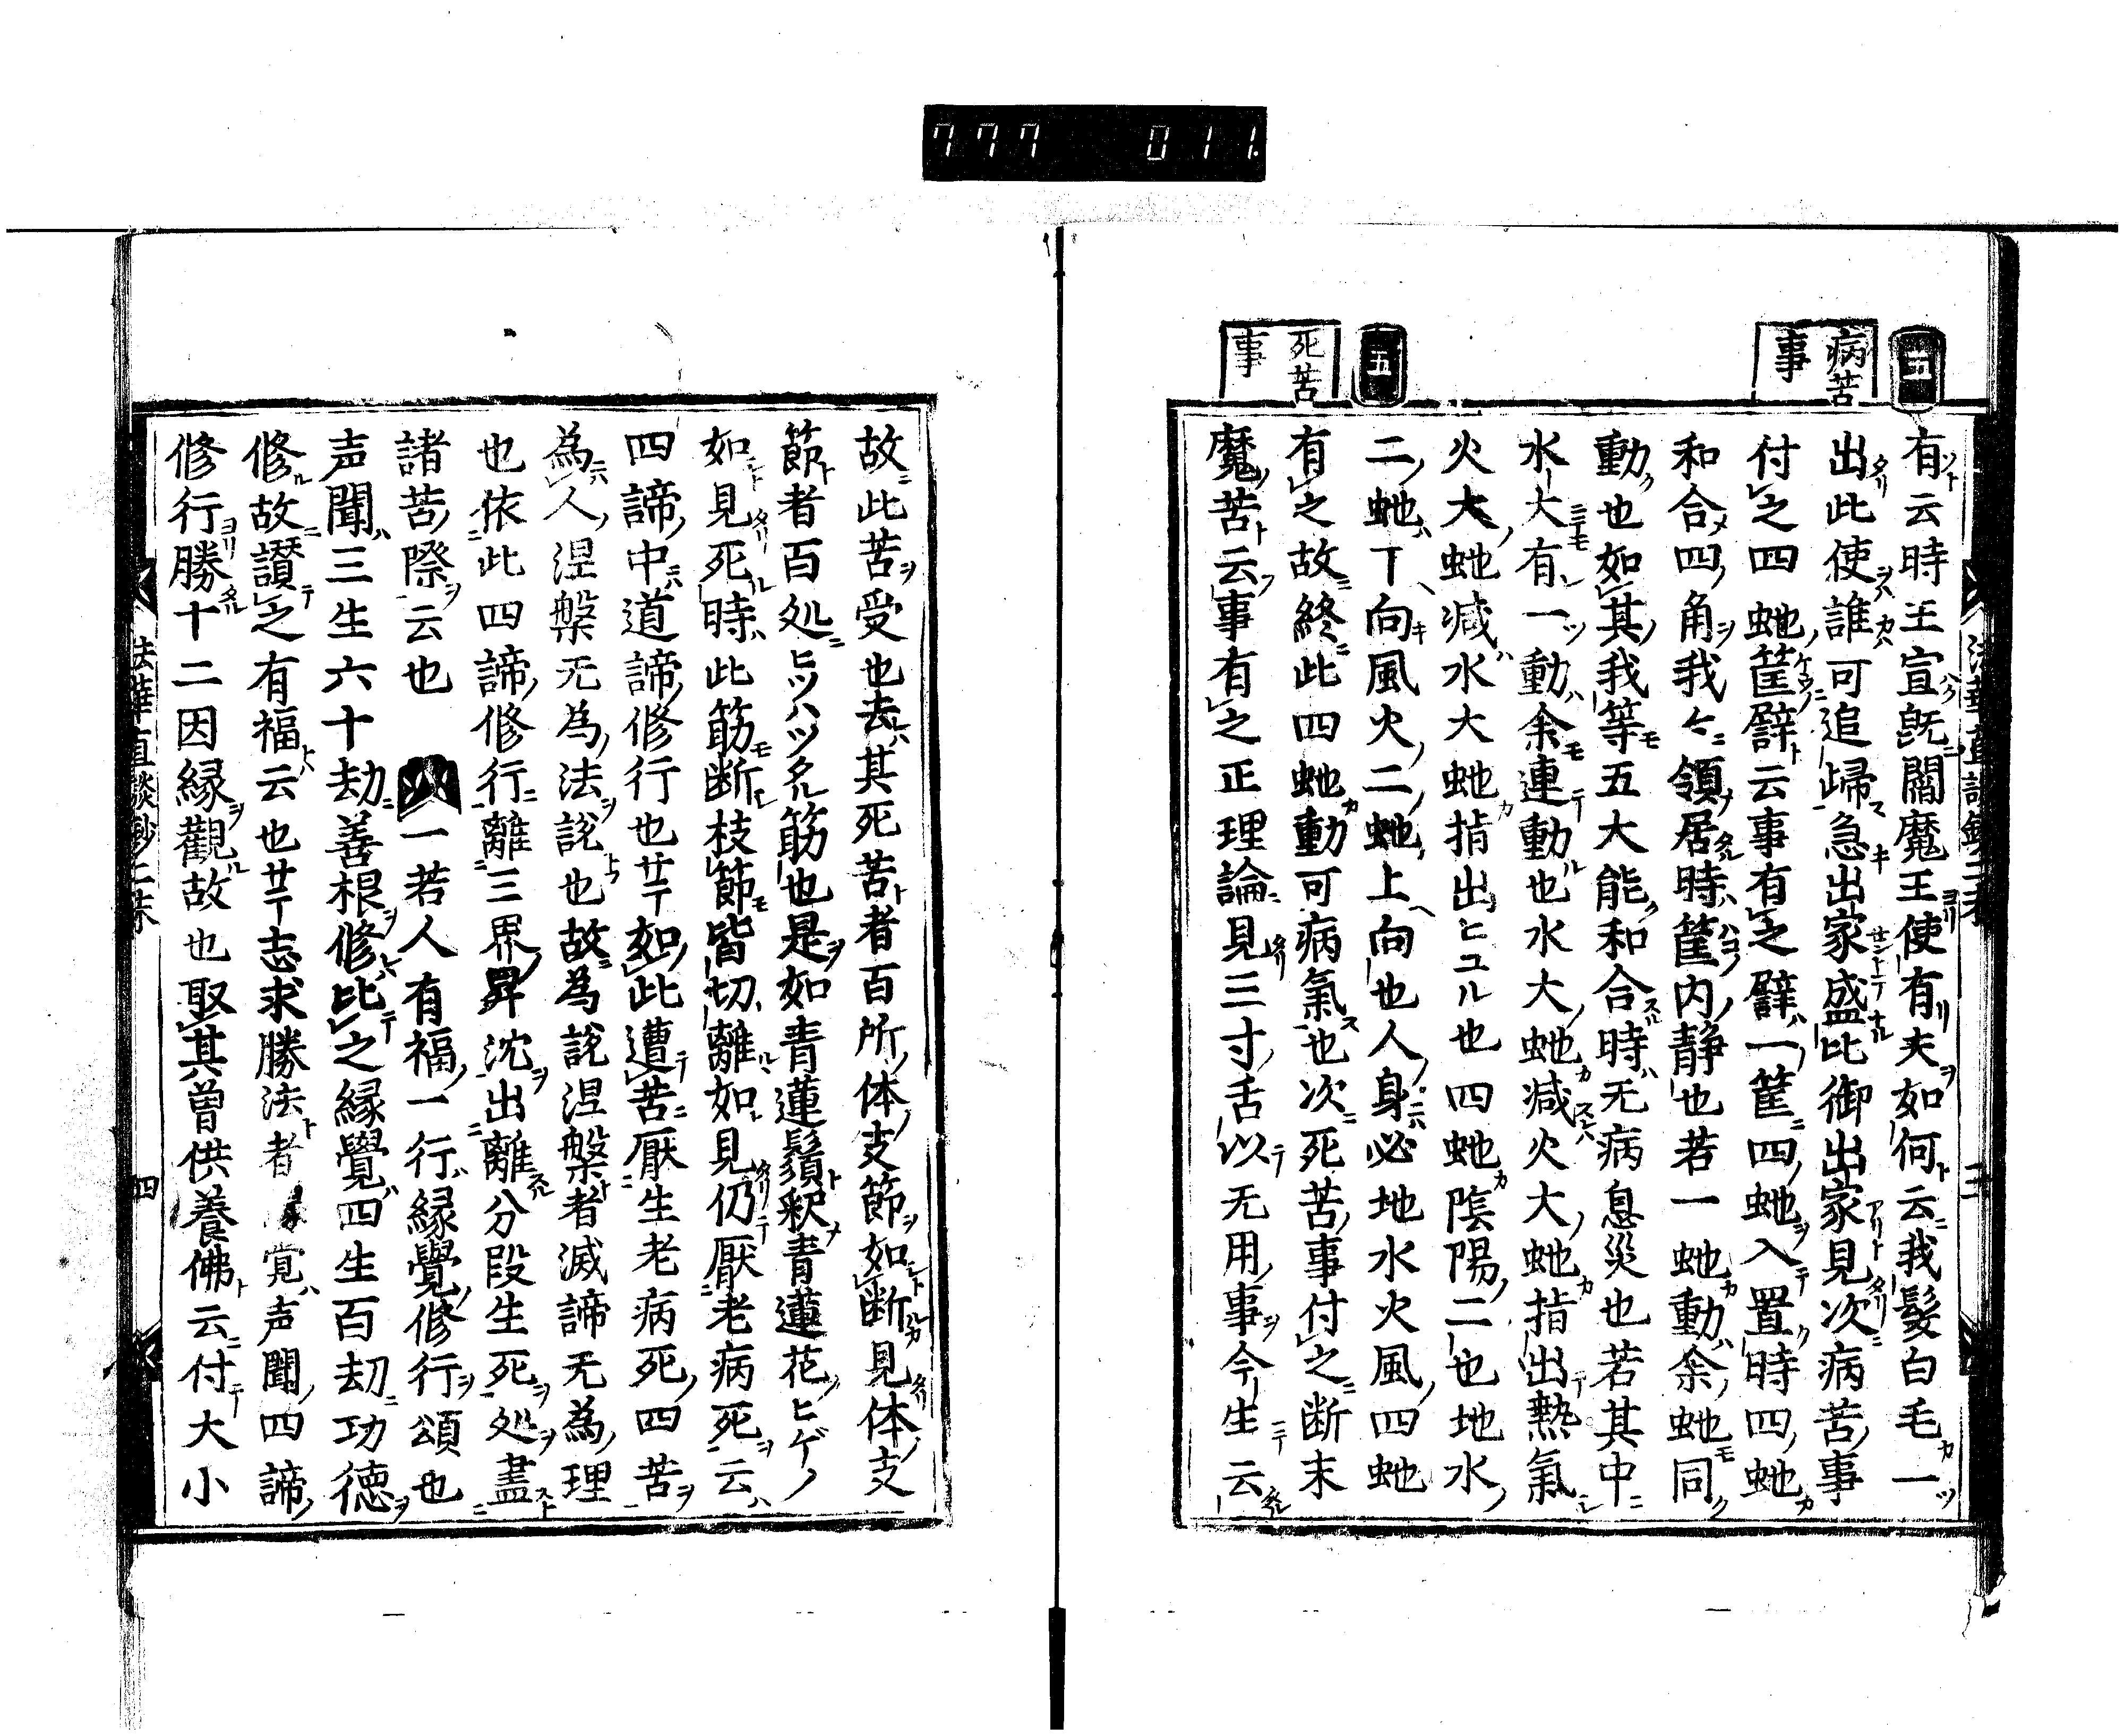 777 011.
五
病苦
事
五
死苦
事
有云時王宣既閻魔王使有夫如何云我髮白毛一
出此使誰可追歸急出家盛比御出家見次病苦事
付之四虵筐譬云事有之譬一筐四虵入置時四虵
和合四角我々領居時筐内静也若一虵動余虵同
動也如其我等五大能和合時无病息災也若其中
水大有一動余連動也水大虵减火大虵指出熱氣
火大虵减水大虵指出ヒユル也四虵陰陽二也地水
二虵下向風火二虵上向也人身必地水火風四虵
有之故終此四虵動可病氣也次死苦事付之断末
魔苦云事有之正理論見三寸舌以无用事今生云
故此苦受也去其死苦者百所体支節如断見体支
節者百処ヒツハツタル筋也是如青蓮鬚釈青蓮花ヒゲノ
如見死時此筋断枝節皆切離如見仍厭老病死云
四諦中道諦修行也サテ如此遭苦厭生老病死四苦
為人涅槃无為法説也故為説涅槃者滅諦无為理
也依此四諦修行離三界昇沈出離分段生死処盡
諸苦際云也 一若人有福一行縁覺修行頌也
声聞三生六十劫善根修比之縁覺四生百劫功徳
修故讃之有福云也サテ志求勝法者縁覚声聞四諦
修行勝十二因縁觀故也娶其曽供養佛云付大小
法華直談鈔二末 四